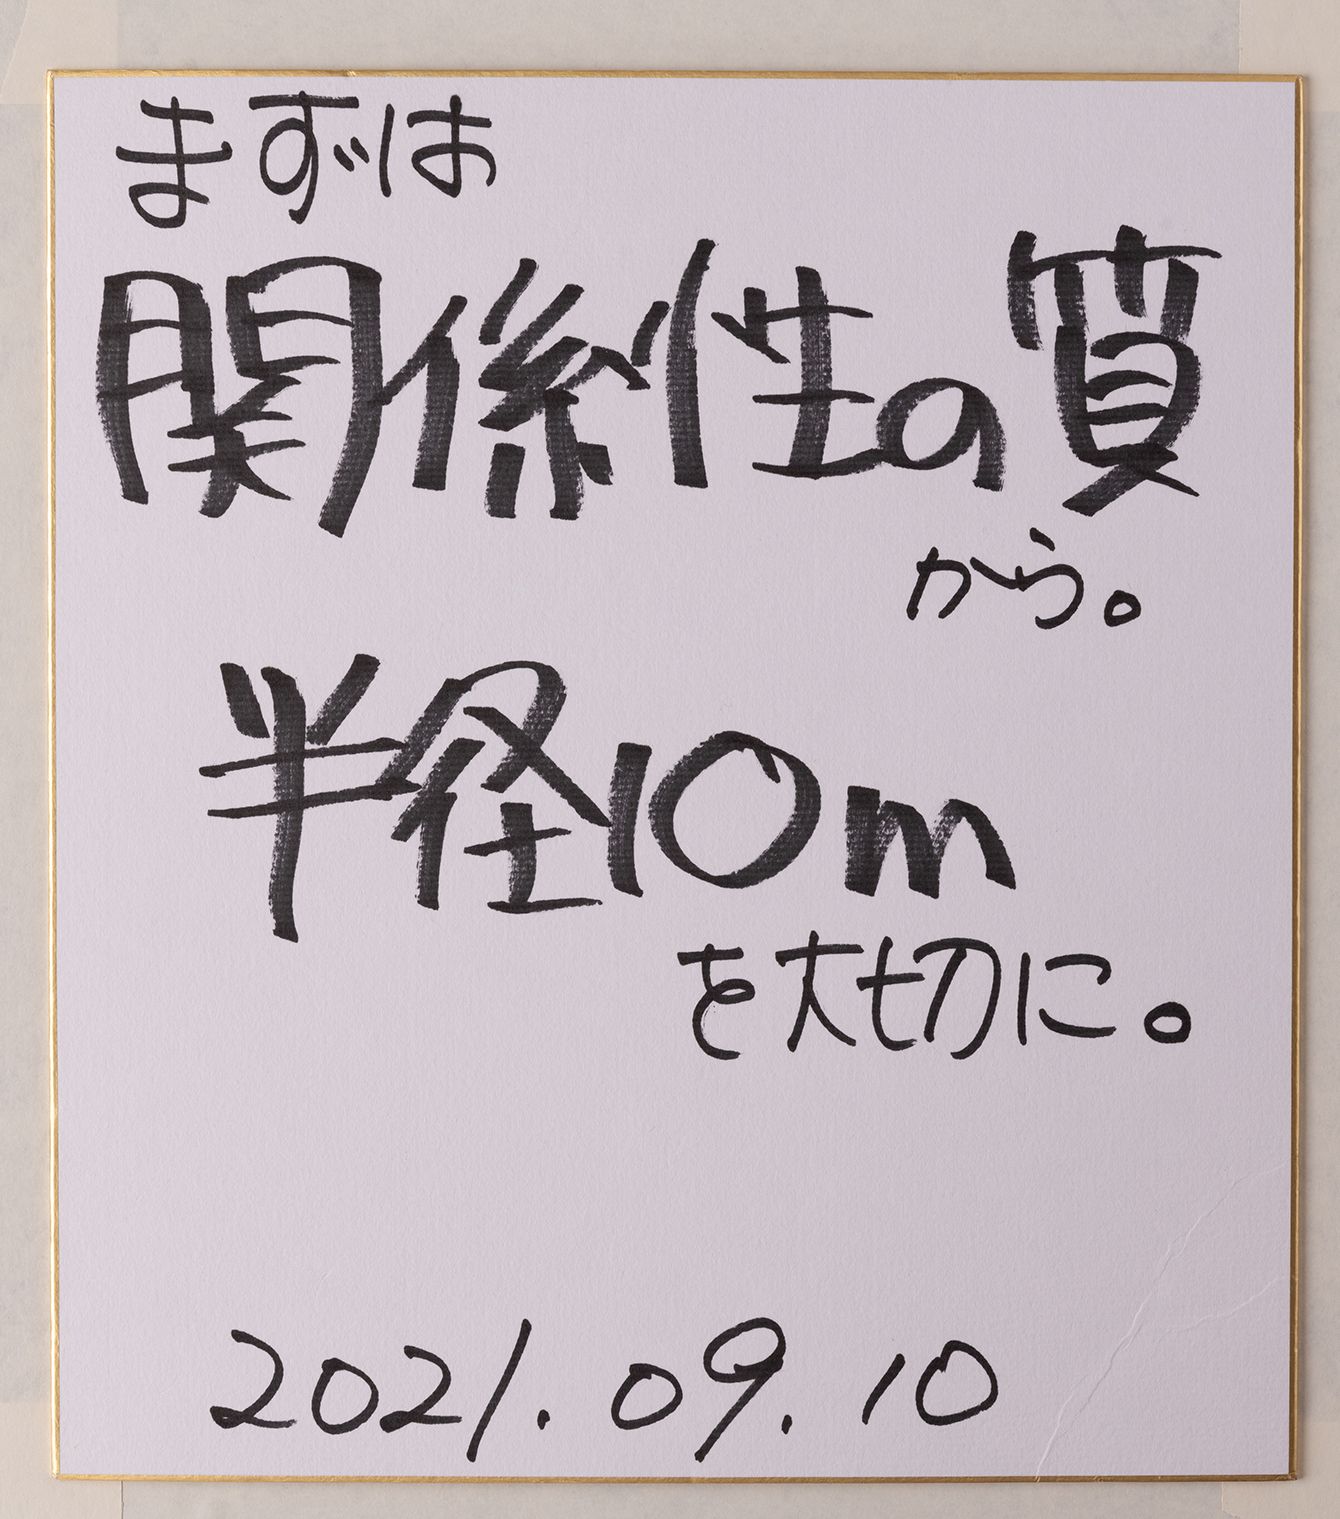 まずは
関係性の質
から。
半径10m
を大切に。
2021.09.10